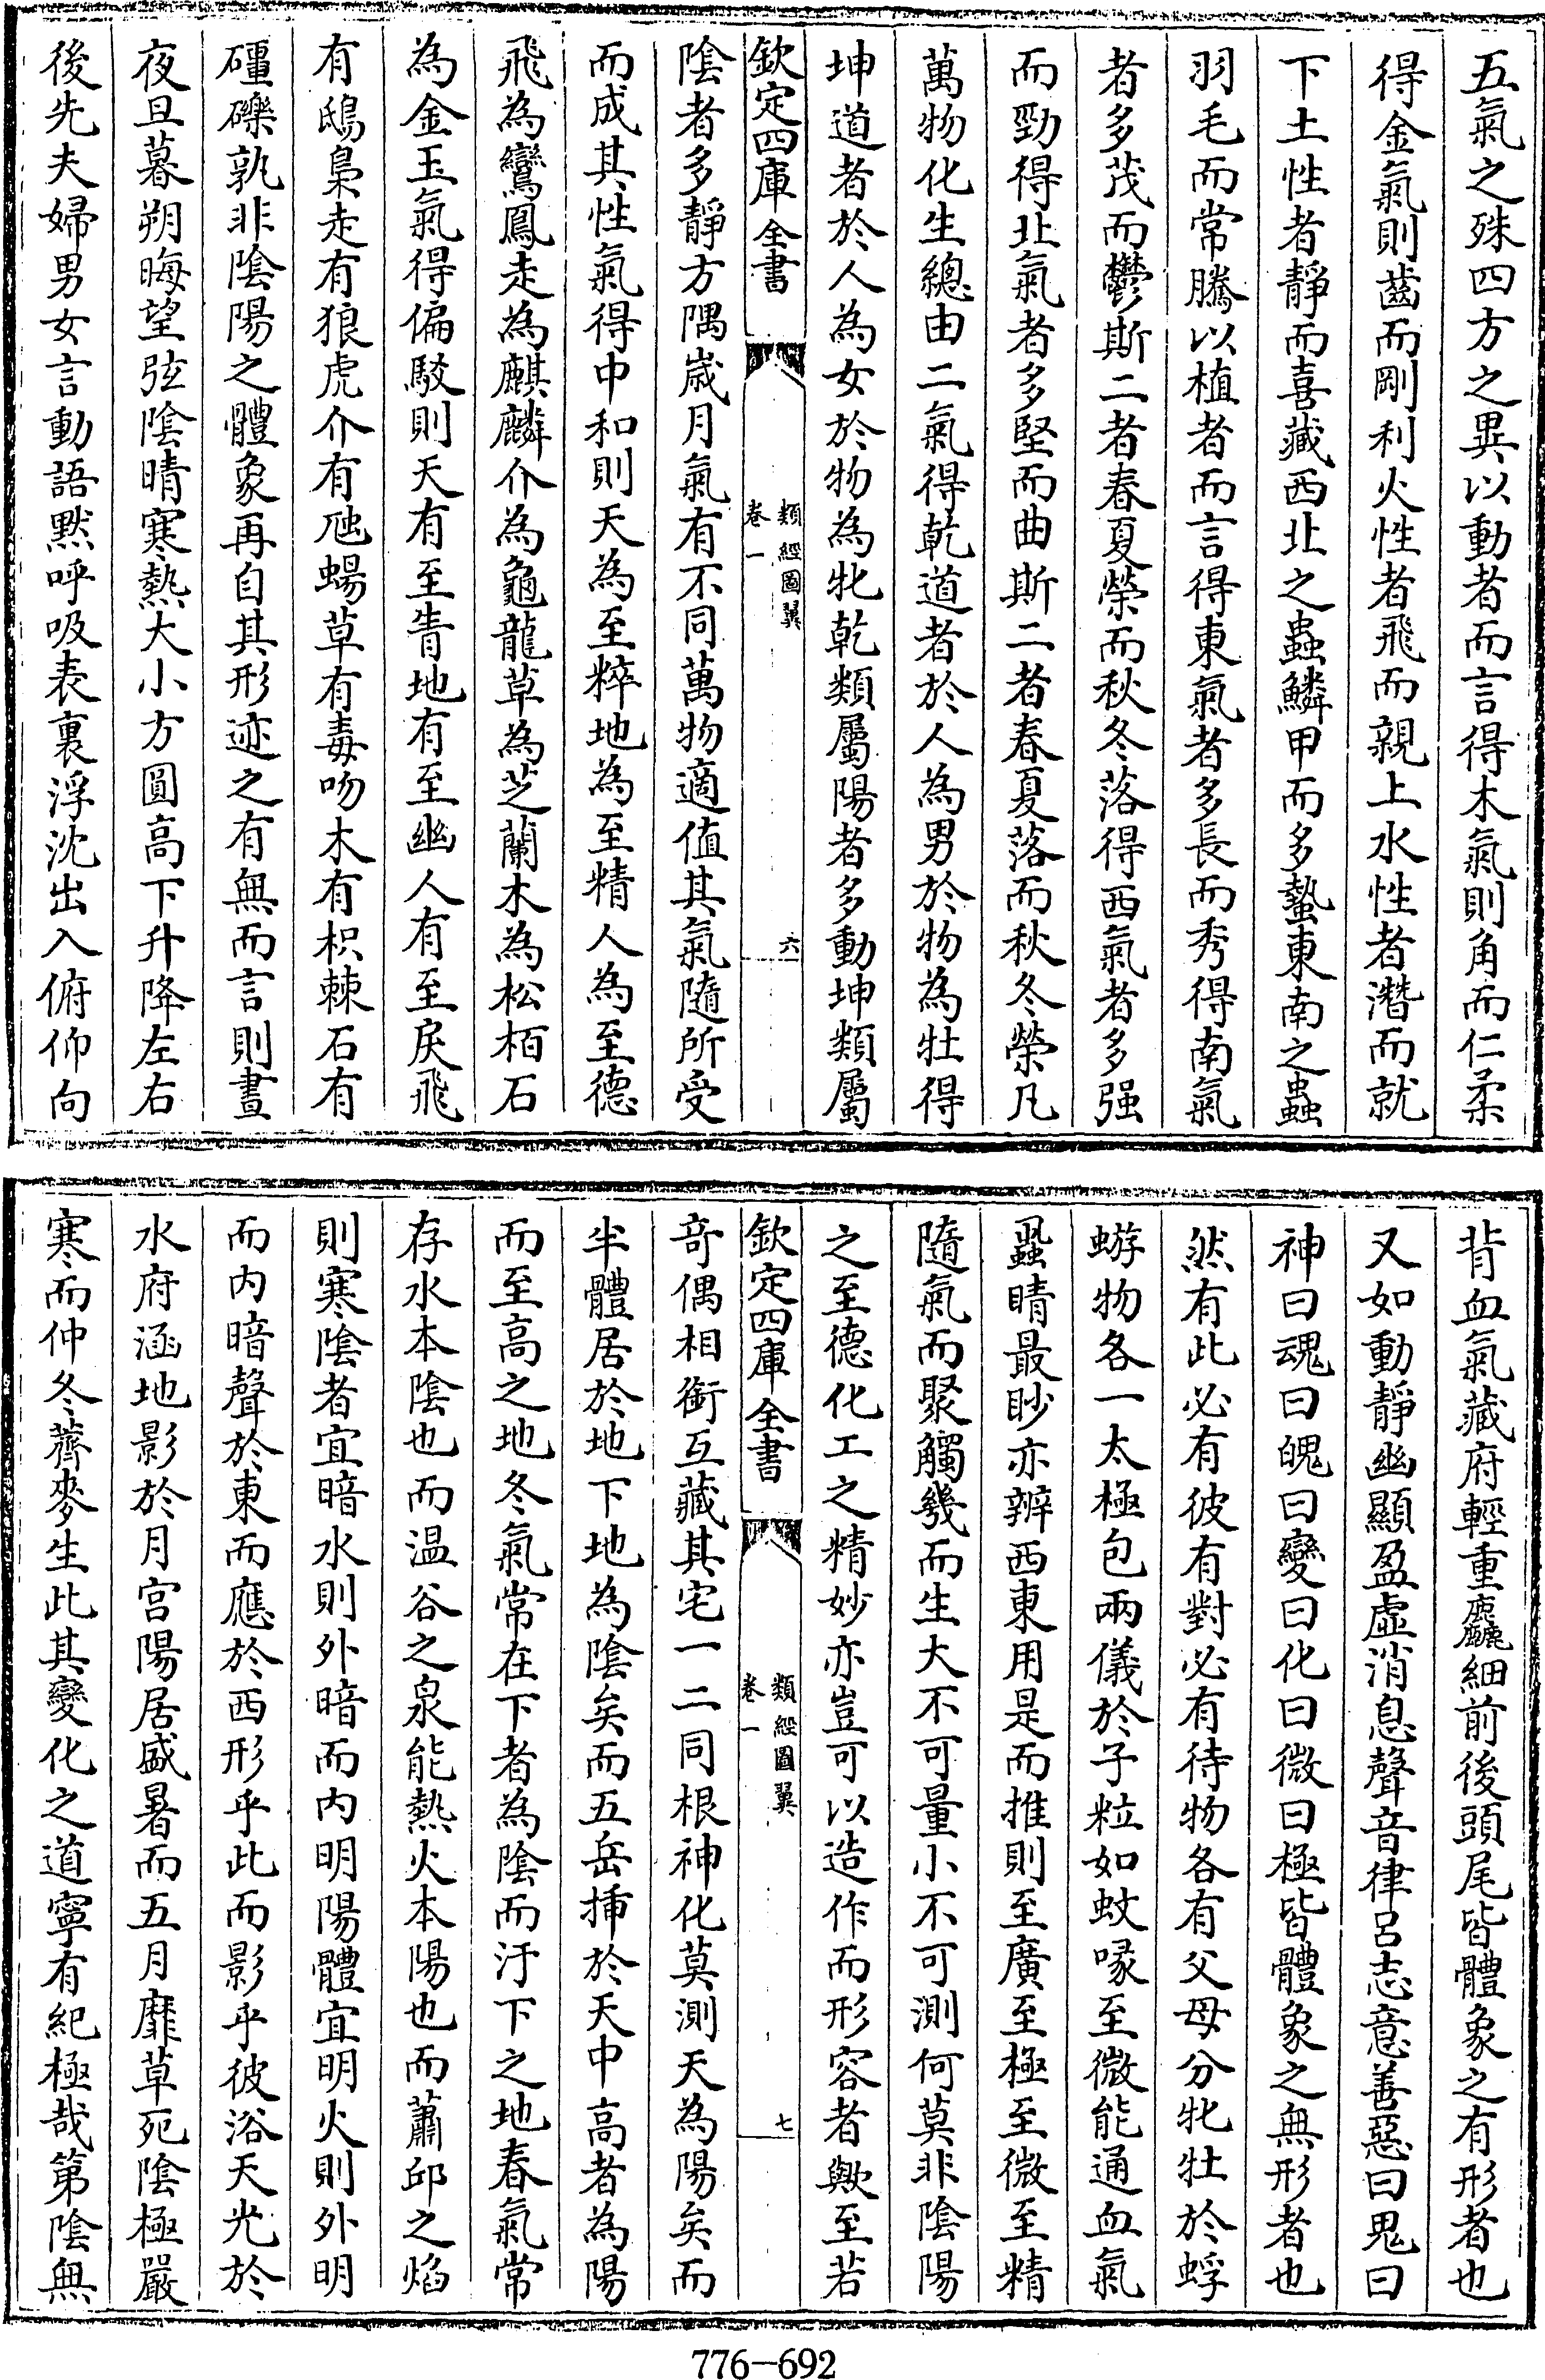 五氣之殊四方之異以動者而言得木氣則角而仁柔
得金氣則齒而剛利火性者飛而親上水性者潛而就
下土性者靜而喜藏西北之蟲鱗甲而多蟄東南之蟲
羽毛而常騰以植者而言得東氣者多長而秀得南氣
者多茂而鬱斯二者春夏榮而秋冬落得西氣者多强
而勁得北氣者多堅而曲斯二者春夏落而秋冬榮凡
萬物化生總由二氣得乾道者於人為男於物為牡得
坤道者於人為女於物為牝乾類屬陽者多動坤類屬
欽定四庫全書
類經圖翼
卷一
六
陰者多靜方隅歲月氣有不同萬物適值其氣隨所受
而成其性氣得中和則天為至粹地為至精人為至德
飛為鸞鳳走為麒麟介為龜龍草為芝蘭木為松栢石
為金玉氣得偏駁則天有至眚地有至幽人有至戾飛
有鴟梟走有狼虎介有虺蜴草有毒吻木有枳棘石有
礓礫孰非陰陽之體象再自其形迹之有無而言則晝
夜旦暮朔晦望弦陰晴寒熱大小方圓高下升降左右
後先夫婦男女言動語默呼吸表裏浮沈出入俯仰向
背血氣藏府輕重麤細前後頭尾皆體象之有形者也
又如動靜幽顯盈虛消息聲音律呂志意善惡曰鬼曰
神曰魂曰魄曰變曰化曰微曰極皆體象之無形者也
然有此必有彼有對必有待物各有父母分牝牡於蜉
蝣物各一太極包兩儀於子粒如蚊喙至微能通血氣
蝨睛最眇亦辨西東用是而推則至廣至極至微至精
隨氣而聚觸幾而生大不可量小不可測何莫非陰陽
之至德化工之精妙亦豈可以造作而形容者歟至若
欽定四庫全書
類經圖翼
卷一
七
奇偶相銜互藏其宅一二同根神化莫測天為陽矣而
半體居於地下地為陰矣而五岳揷於天中高者為陽
而至高之地冬氣常在下者為陰而汙下之地春氣常
存水本陰也而温谷之泉能熱火本陽也而蕭邱之焰
則寒陰者宜暗水則外暗而内明陽體宜明火則外明
而内暗聲於東而應於西形乎此而影乎彼浴天光於
水府涵地影於月宫陽居盛暑而五月靡草死陰極嚴
寒而仲冬薺麥生此其變化之道寧有紀極哉第陰無
776-692